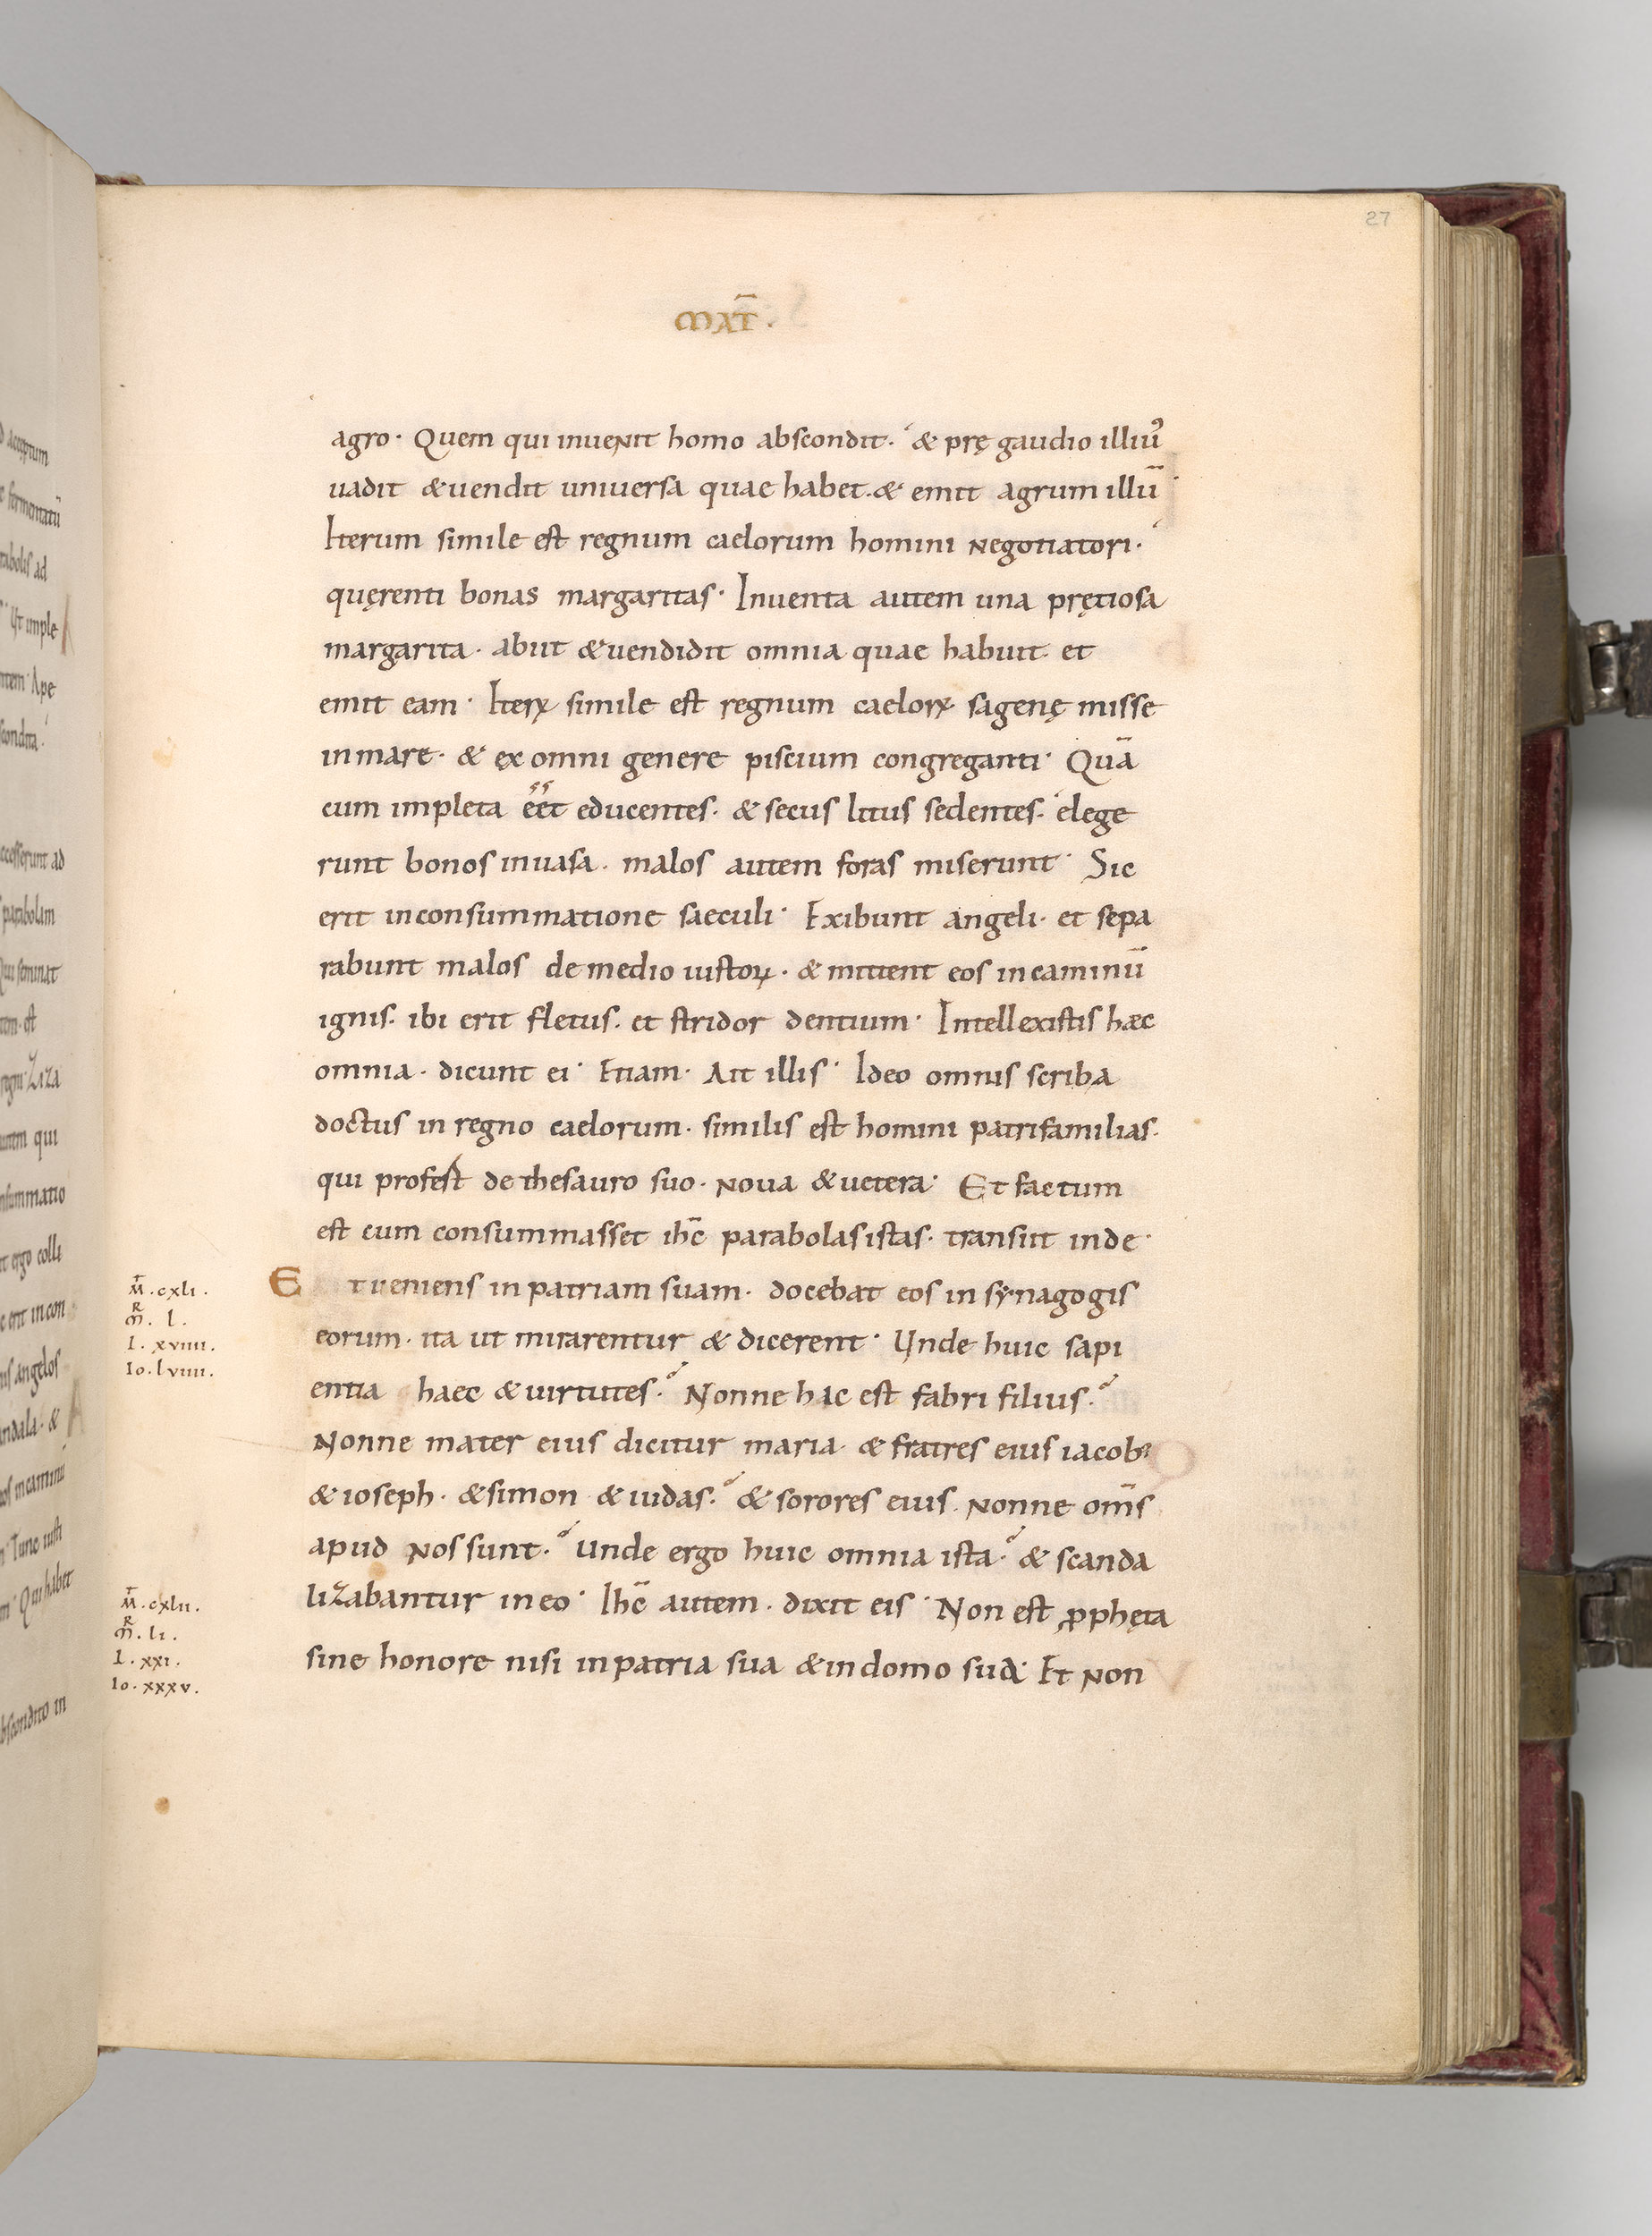 27
MAT̄.
agro· Quem qui inuenit homo abscondit· & prę gaudio illiuꝰ
uadit &uendit uniuersa quae habet· & emit agrum illū
Iterum simile est regnum caelorum homini negotiatori·
quęrenti bonas margaritas· Inuenta autem una prętiosa
margarita· abiit &uendidit omnia quae habuit· et
emit eam· Iteꝝ simile est regnum caeloꝝ sagenę misse
inmare· & ex omni genere piscium congreganti· Quā
cum impleta eēt educentes· & secus litus sedentes· elege
runt bonos inuasa· malos autem foras miserunt· Sic
erit inconsummatione saeculi· Exibunt angeli· et sepa
rabunt malos de medio iustoꝝ· & mittent eos incaminū
ignis· ibi erit fletus· et stridor dentium· Intellexistis hæc
omnia· dicunt ei· Etiam· Ait illis· Ideo omnis scriba
doctus in regno caelorum· similis est homini patrifamilias·
qui profert de thesauro suo· noua &uetera· Et factum
est cum consummasset ihc̄ parabolas istas· transiit inde·
M̄· cxli· Et ueniens in patriam suam· docebat eos in synagogis
mR· l·
l· xviiii· eorum· ita ut mirarentur & dicerent· Unde huic sapi
Io· lviiii· entia haec &uirtutes· Nonne hic est fabri filius·
Nonne mater eius dicitur maria· & fratres eius iacobꝰ
& ioseph· &simon &iudas· & sorores eius· nonne om̄s
apud nos sunt· unde ergo huic omnia ista· & scanda
M̄· cxlii· lizabantur ineo· Ihc̄ autem· dixit eis· Non est ꝓphęta
mR· li·
l· xxi· sine honore nisi inpatria sua &indomo sua· Et non
Io· xxxv·